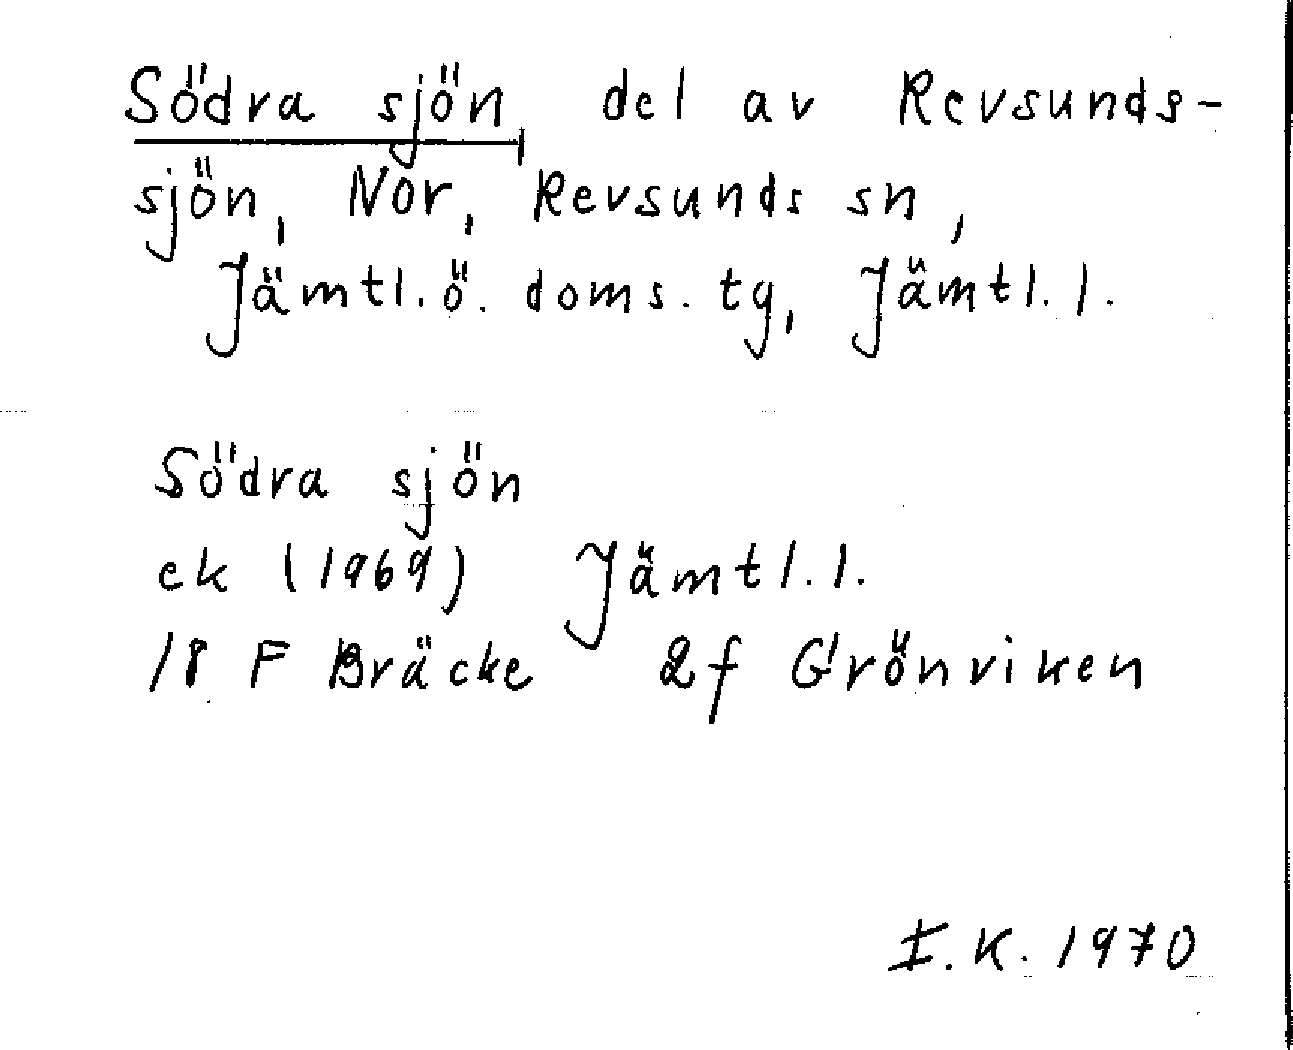 Södra sjön, del av Revsunds-
sjön, Nor, Revsunds sn,
Jämtl. ö. doms. tg, Jämtl. l.
Södra sjön
ek (1969) Jämtl. l.
18 F Bräcke 2f Grönviken
I. K. 1970